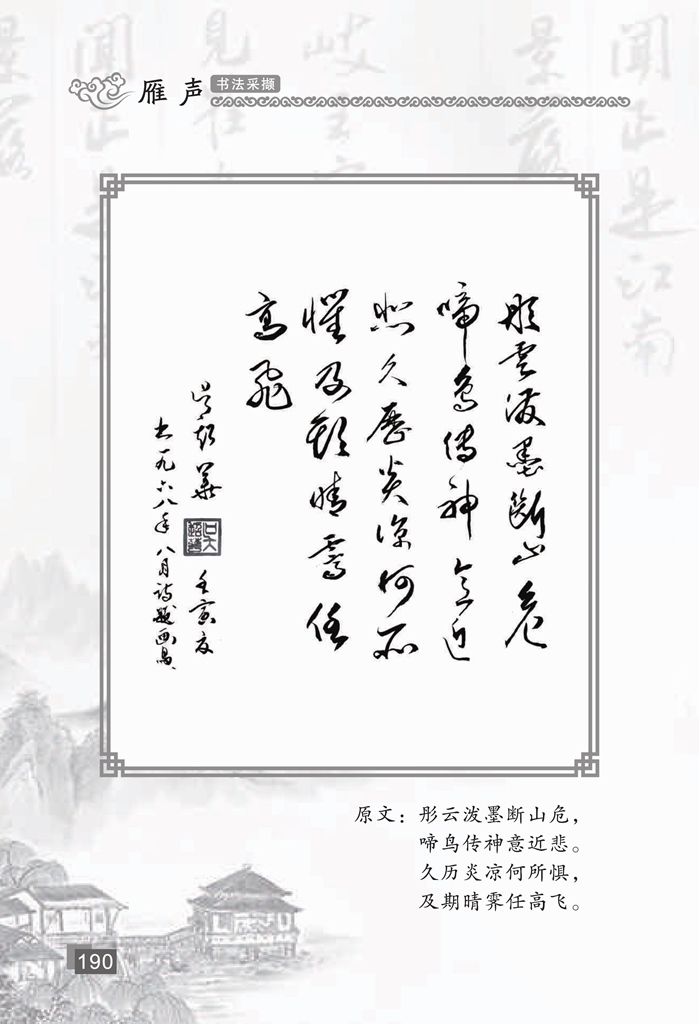 雁声 书法采撷
彤雲泼墨斷山危
啼鳥傳神意近
悲久歷炎凉何所
懼及期晴霽任
高飛
吴超華 壬寅夏
书一九六八年八月诗题画鳥
原文：彤云泼墨断山危，
啼鸟传神意近悲。
久历炎凉何所惧，
及期晴霁任高飞。
190